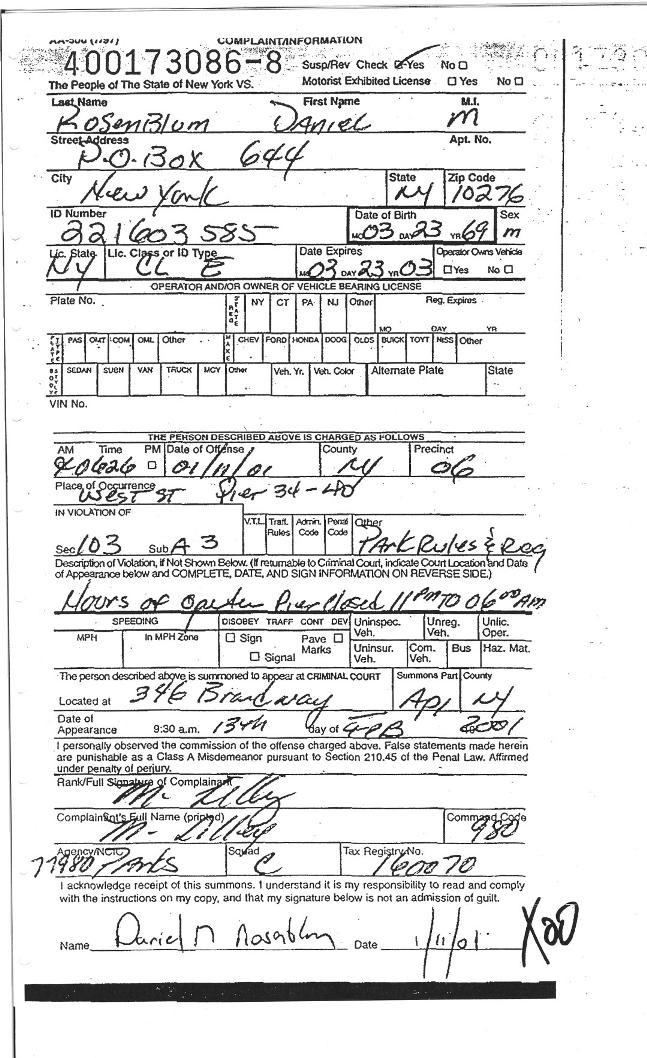 AA-300 (7/97) COMPLAINT/INFORMATION
400173086-8
Susp/Rev Check ☑ Yes No ☐
The People of The State of New York VS. Motorist Exhibited License ☐ Yes No ☐
Last Name First Name M.I.
RosenBlum Daniel m
Street Address Apt. No.
P.O. Box 644
City State Zip Code
New York NY 10276
ID Number Date of Birth Sex
221603585 MO 03 DAY 23 YR 69 m
Lic. State Lic. Class or ID Type Date Expires Operator Owns Vehicle
NY CL E MO 03 DAY 23 YR 03 ☐ Yes No ☐
OPERATOR AND/OR OWNER OF VEHICLE BEARING LICENSE
Plate No. REG STATE NY CT PA NJ Other Reg. Expires
MO DAY YR
PLATE TYPE PAS OMT COM OML Other MAKE CHEV FORD HONDA DODG OLDS BUICK TOYT NISS Other
BODY STYLE SEDAN SUBN VAN TRUCK MCY Other Veh. Yr. Veh. Color Alternate Plate State
VIN No.
THE PERSON DESCRIBED ABOVE IS CHARGED AS FOLLOWS
AM Time PM Date of Offense County Precinct
0626 ☐ 01/11/01 NY 06
Place of Occurrence
West ST Pier 34-40
IN VIOLATION OF V.T.L. Traff. Rules Admin. Code Penal Code Other
Sec 103 Sub A 3 Park Rules & Reg
Description of Violation, if Not Shown Below. (If returnable to Criminal Court, indicate Court Location and Date
of Appearance below and COMPLETE, DATE, AND SIGN INFORMATION ON REVERSE SIDE.)
Hours of Pier Closed 11 PM TO 06 00 AM
SPEEDING DISOBEY TRAFF CONT DEV Uninspec. Veh. Unreg. Veh. Unlic. Oper.
MPH In MPH Zone ☐ Sign Pave ☐ Marks
☐ Signal Uninsur. Veh. Com. Veh. Bus Haz. Mat.
The person described above is summoned to appear at CRIMINAL COURT Summons Part County
Located at 346 Broadway AP1 NY
Date of Appearance 9:30 a.m. 13th day of FEB 2001
I personally observed the commission of the offense charged above. False statements made herein
are punishable as a Class A Misdemeanor pursuant to Section 210.45 of the Penal Law. Affirmed
under penalty of perjury.
Rank/Full Signature of Complainant
M. Lilley
Complainant's Full Name (printed) Command Code
M. Lilley 980
Agency/NCIC Squad Tax Registry No.
77980 Parks C 160070
I acknowledge receipt of this summons. I understand it is my responsibility to read and comply
with the instructions on my copy, and that my signature below is not an admission of guilt.
Name Daniel M Rosenblum Date 1/11/01